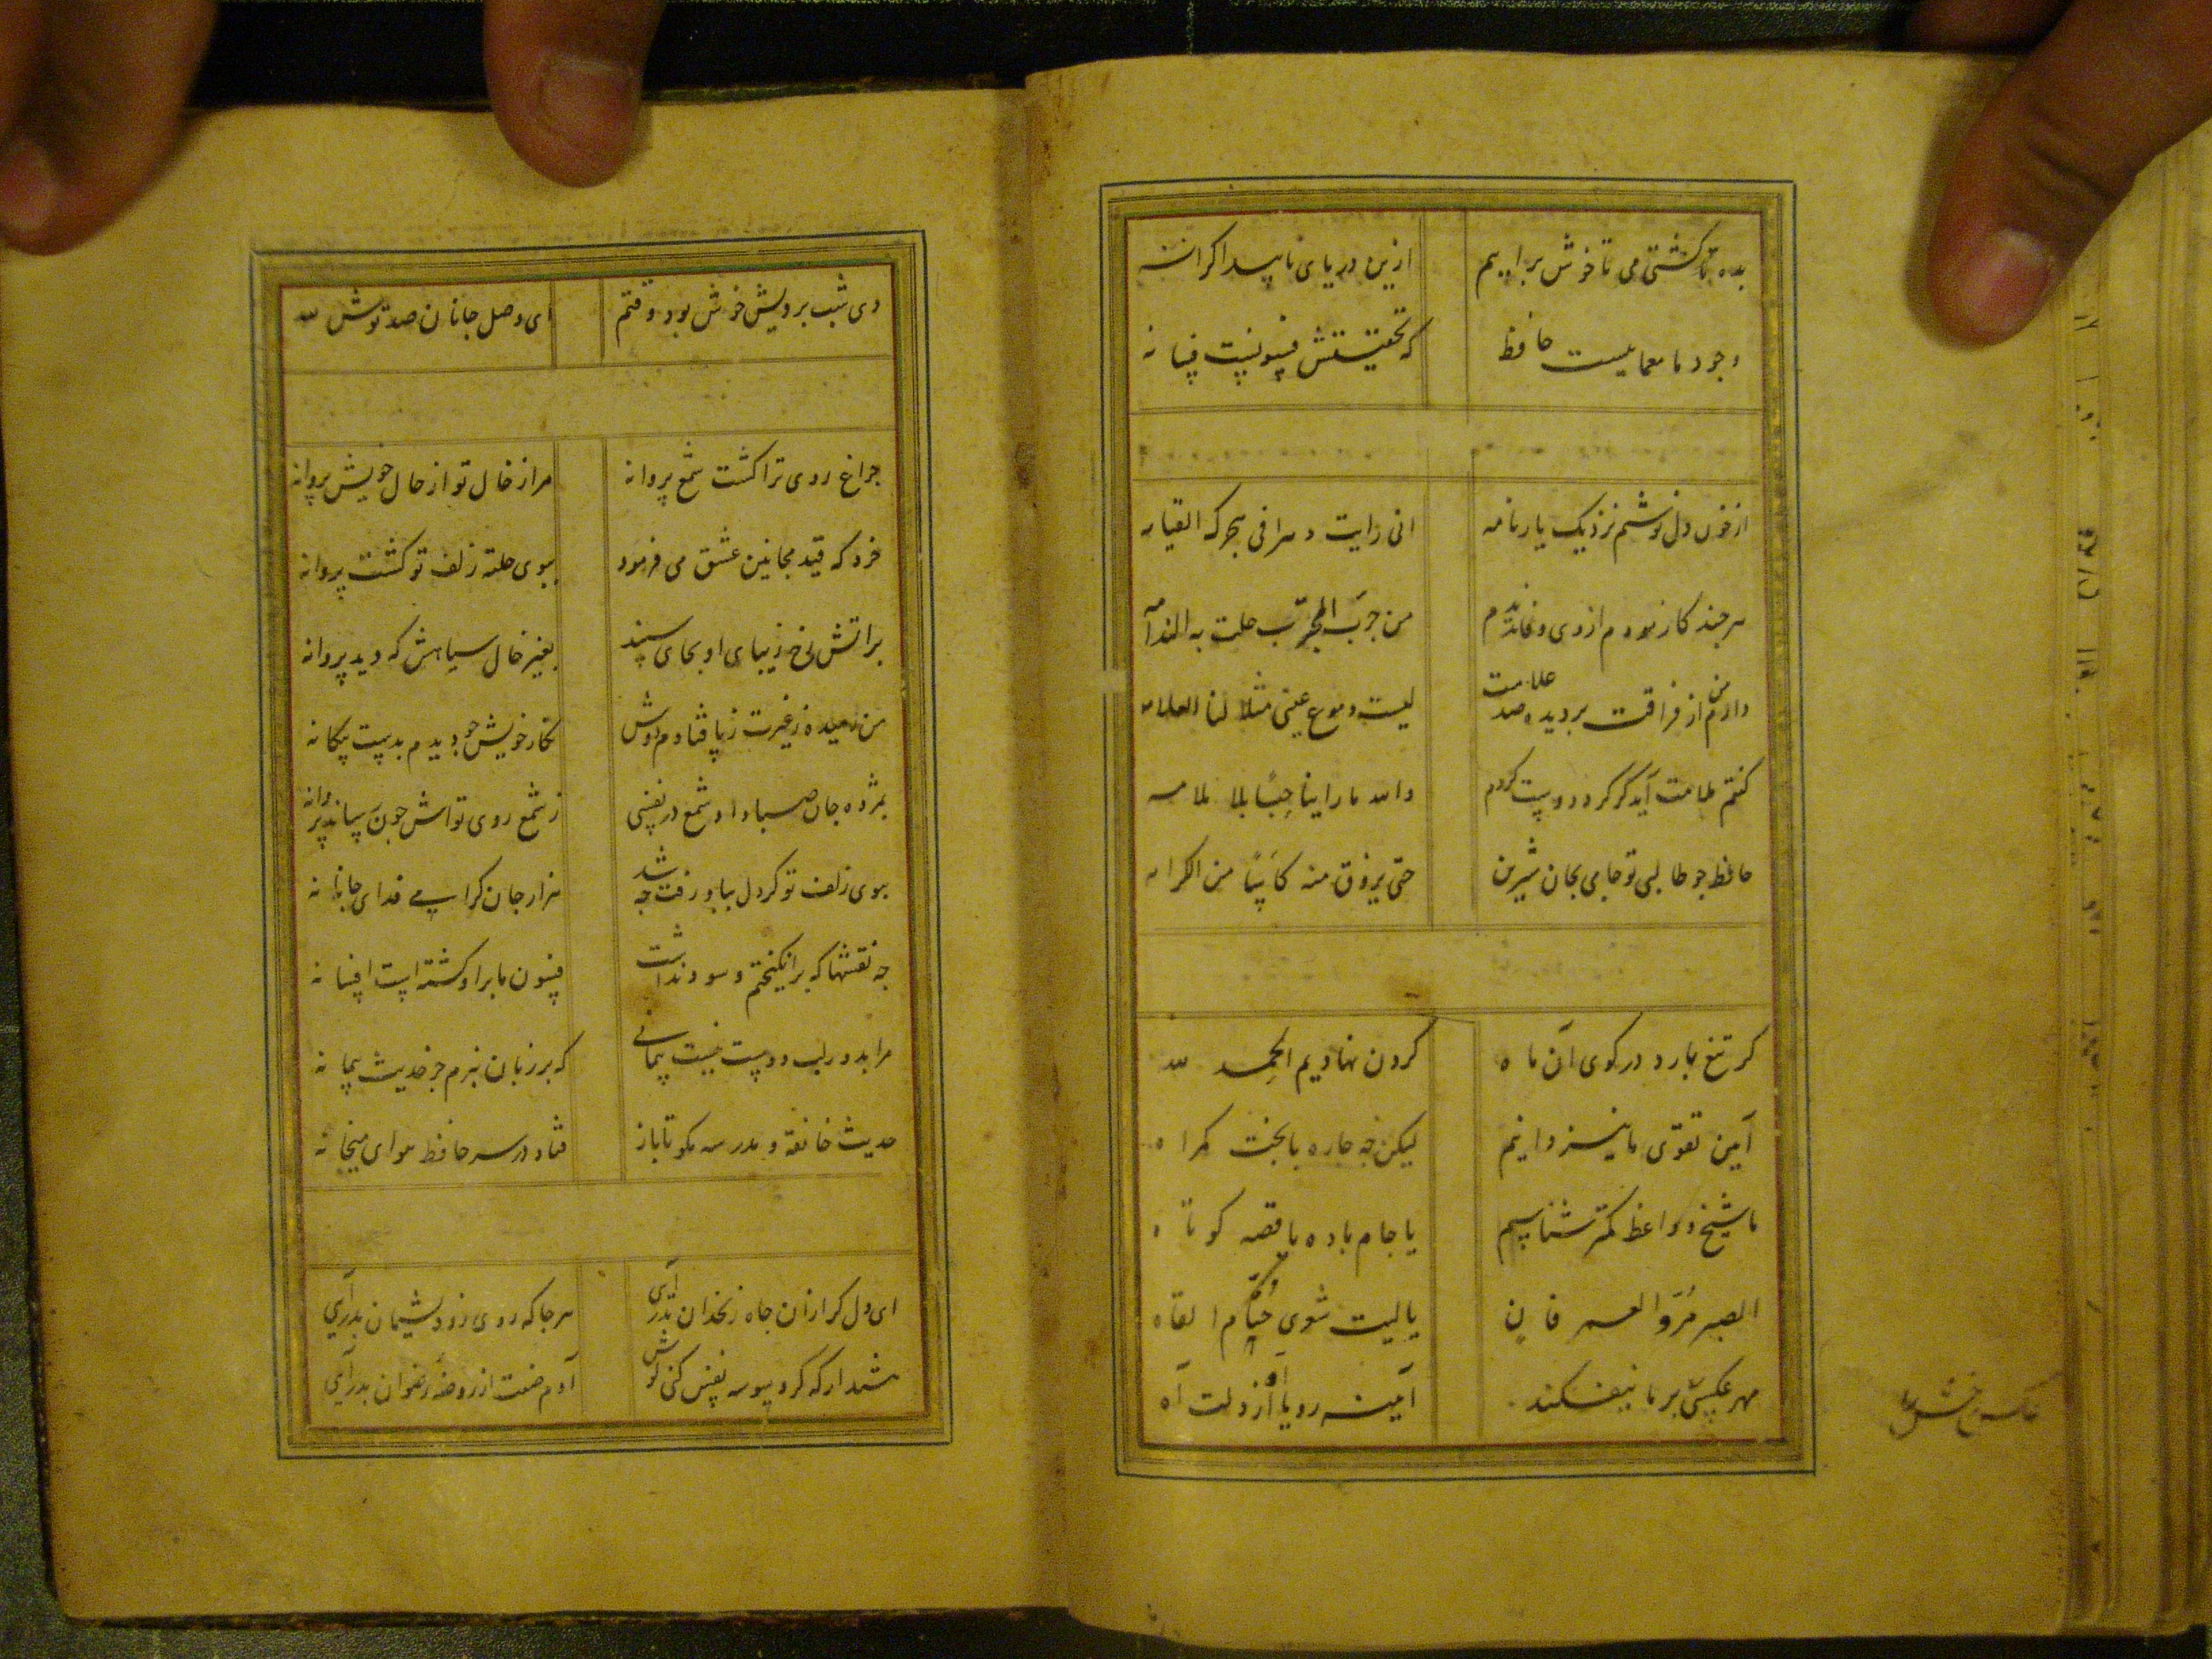 بده تا کشتی می تا خوش براییم ازین دریای ناپیدا کرانه
وجود ما معماییست حافظ که تحقیقش فسونیست فسانه
از خون دل نوشتم نزدیک یار نامه انی رایت دهرا فی هجرک القیامه
هر چند کازمودم از وی نماند سودم من جرب المجرب حلت به الندامه
دارم من از فراقت بر دیده صد علامت لیست دموع عینی هذا لنا العلامه
گفتم ملامت آید گر گرد دوست گردم والله ما راینا حبا بلا ملامه
حافظ جو طالبی تو جامی بجان شیرین حتی یذوق منه کاسا من الکرامه
کر تیغ بارد در کوی آن ماه کردن نهادیم الحمد لله
آیین تقوی ما نیز دانیم لیکن چه چاره با بخت کمراه
ما شیخ و واعظ کمتر شناسیم یا جام باده یا قصه کوتاه
الصبر مر و العمر فان یا لیت شعری حتام القاه
مهر عکسی بر ما نیفکند آیینه رویا آه از دلت آه
دی شب برویش خوش بود وقتم ای وصل جانان صد توش لله
جراغ روی ترا کشت شمع پروانه مرا ز خال تو از حال خویش پروانه
خرد که قید مجانین عشق می فرمود ببوی حلقه زلف تو کشت پروانه
بر اتش رخ زیبای او بجای سپند بغیر خال سیاهش که دید پروانه
من رمیده ز غیرت ز پا فتادم دوش نکار خویش جو دیدم بدست بیکانه
بمژده جان صبا داد شمع در نفسی ز شمع روی تواش جون رساند پروانه
ببوی زلف تو کر دل بباد رفت چه شد هزار جان کرامی فدای جانانه
جه نقشها که برانکیختم و سود نداشت فسون ما بر او کشته است افسانه
مرا بدور لب دوست نیست پیمانی که بر زبان نبرم جز حدیث پیمانه
حدیث خانقه و مدرسه مکو تا باز فتاد در سر حافظ هوای میخانه
ای دل کر از ان جاه زنخدان بدر آیی هر جا که روی زود پشیمان بدر آیی
هشدار که کر وسوسه نفس کنی کوش آدم صفت از روضه رضوان بدر آیی